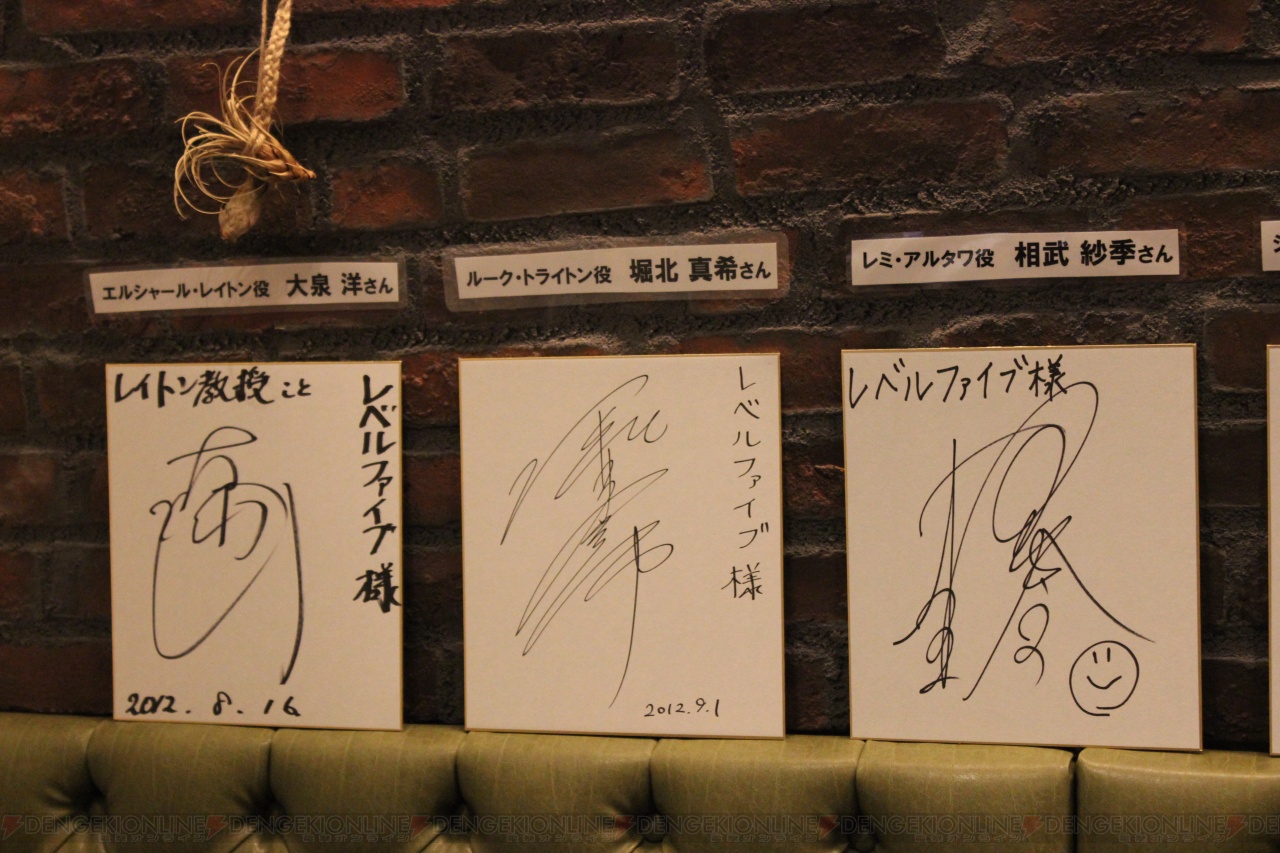 エルシャール・レイトン役 大泉 洋さん
ルーク・トライトン役 堀北 真希さん
レミ・アルタワ役 相武 紗季さん
レイトン教授こと
レベルファイブ様
2012.8.16
レベルファイブ様
2012.9.1
レベルファイブ様
DENGEKIONLINE DENGEKIONLINE DENGEKIONLINE DENGEKIONLINE DENGEKIONLINE DENGEKIONLINE